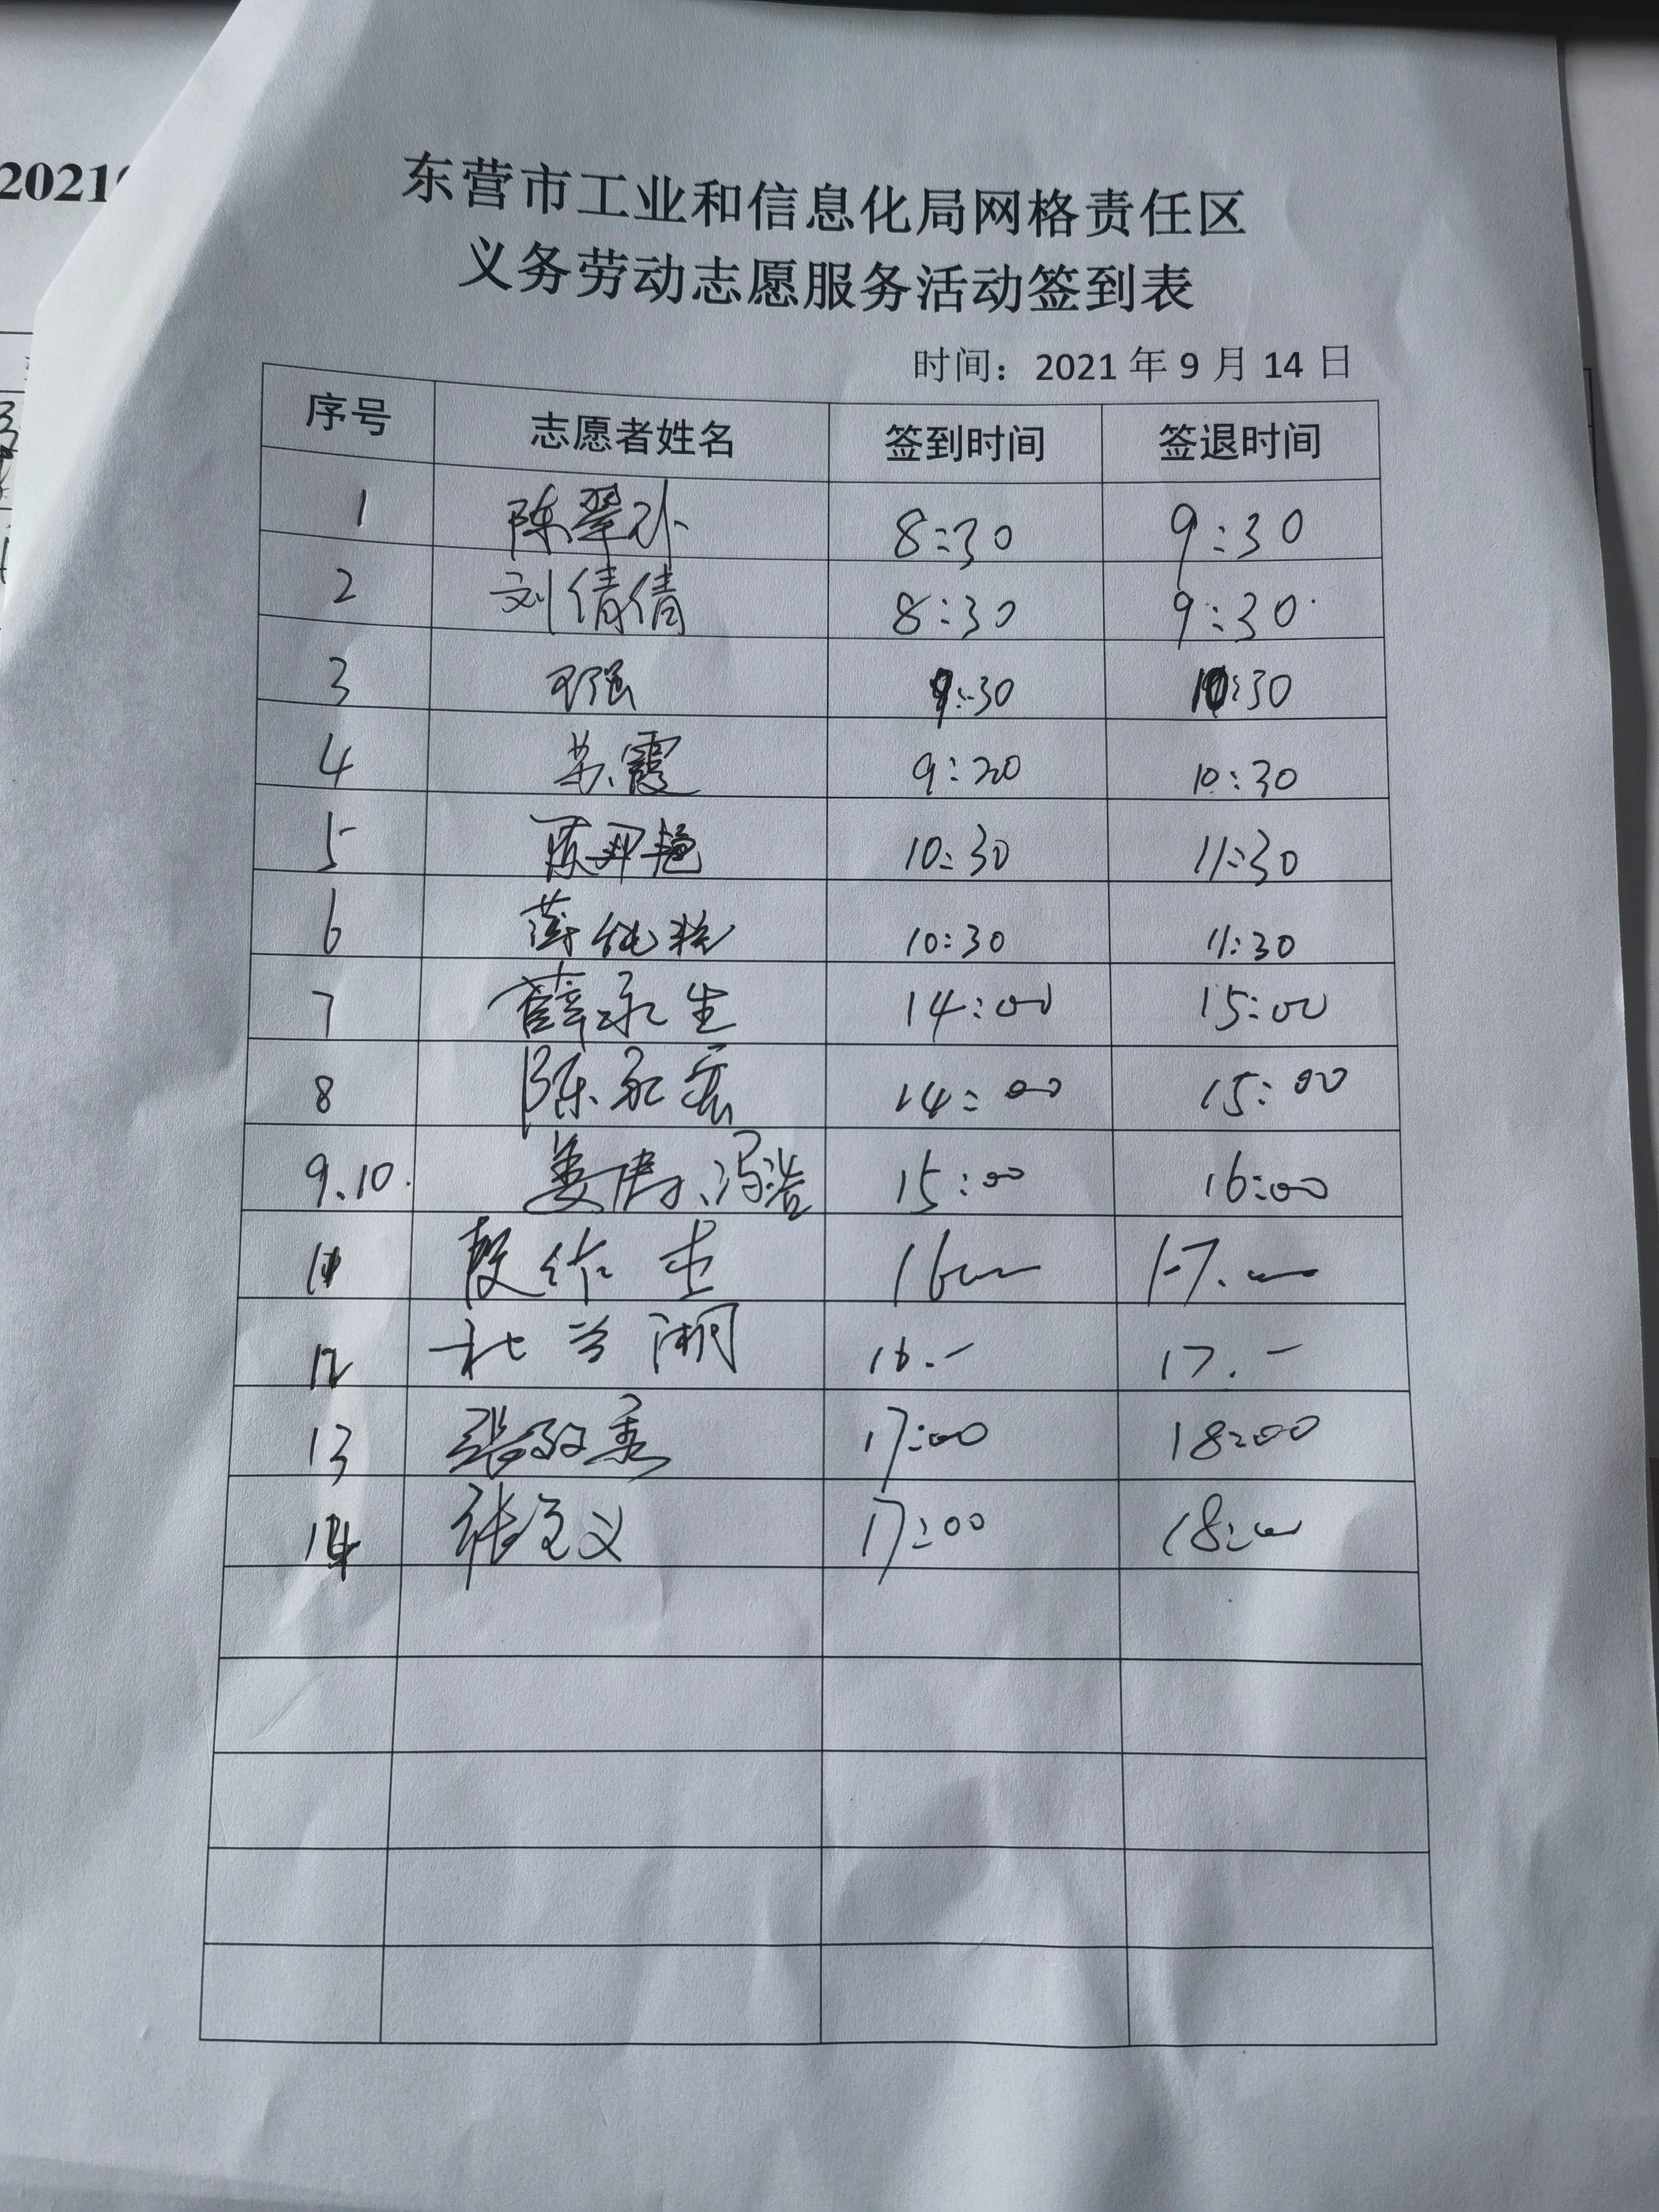 2021
东营市工业和信息化局网格责任区
义务劳动志愿服务活动签到表
时间：2021年9月14日
序号 志愿者姓名 签到时间 签退时间
1 8:30 9:30
2 刘倩倩 8:30 9:30
3 9:30 10:30
4 苏霞 9:20 10:30
5 10:30 11:30
6 10:30 11:30
7 薛永生 14:00 15:00
8 陈永宏 14:00 15:00
9.10. 娄伟、冯浩 15:00 16:00
11 16 17.
12 16.- 17.-
13 17:00 18:00
14 17:00 18:00